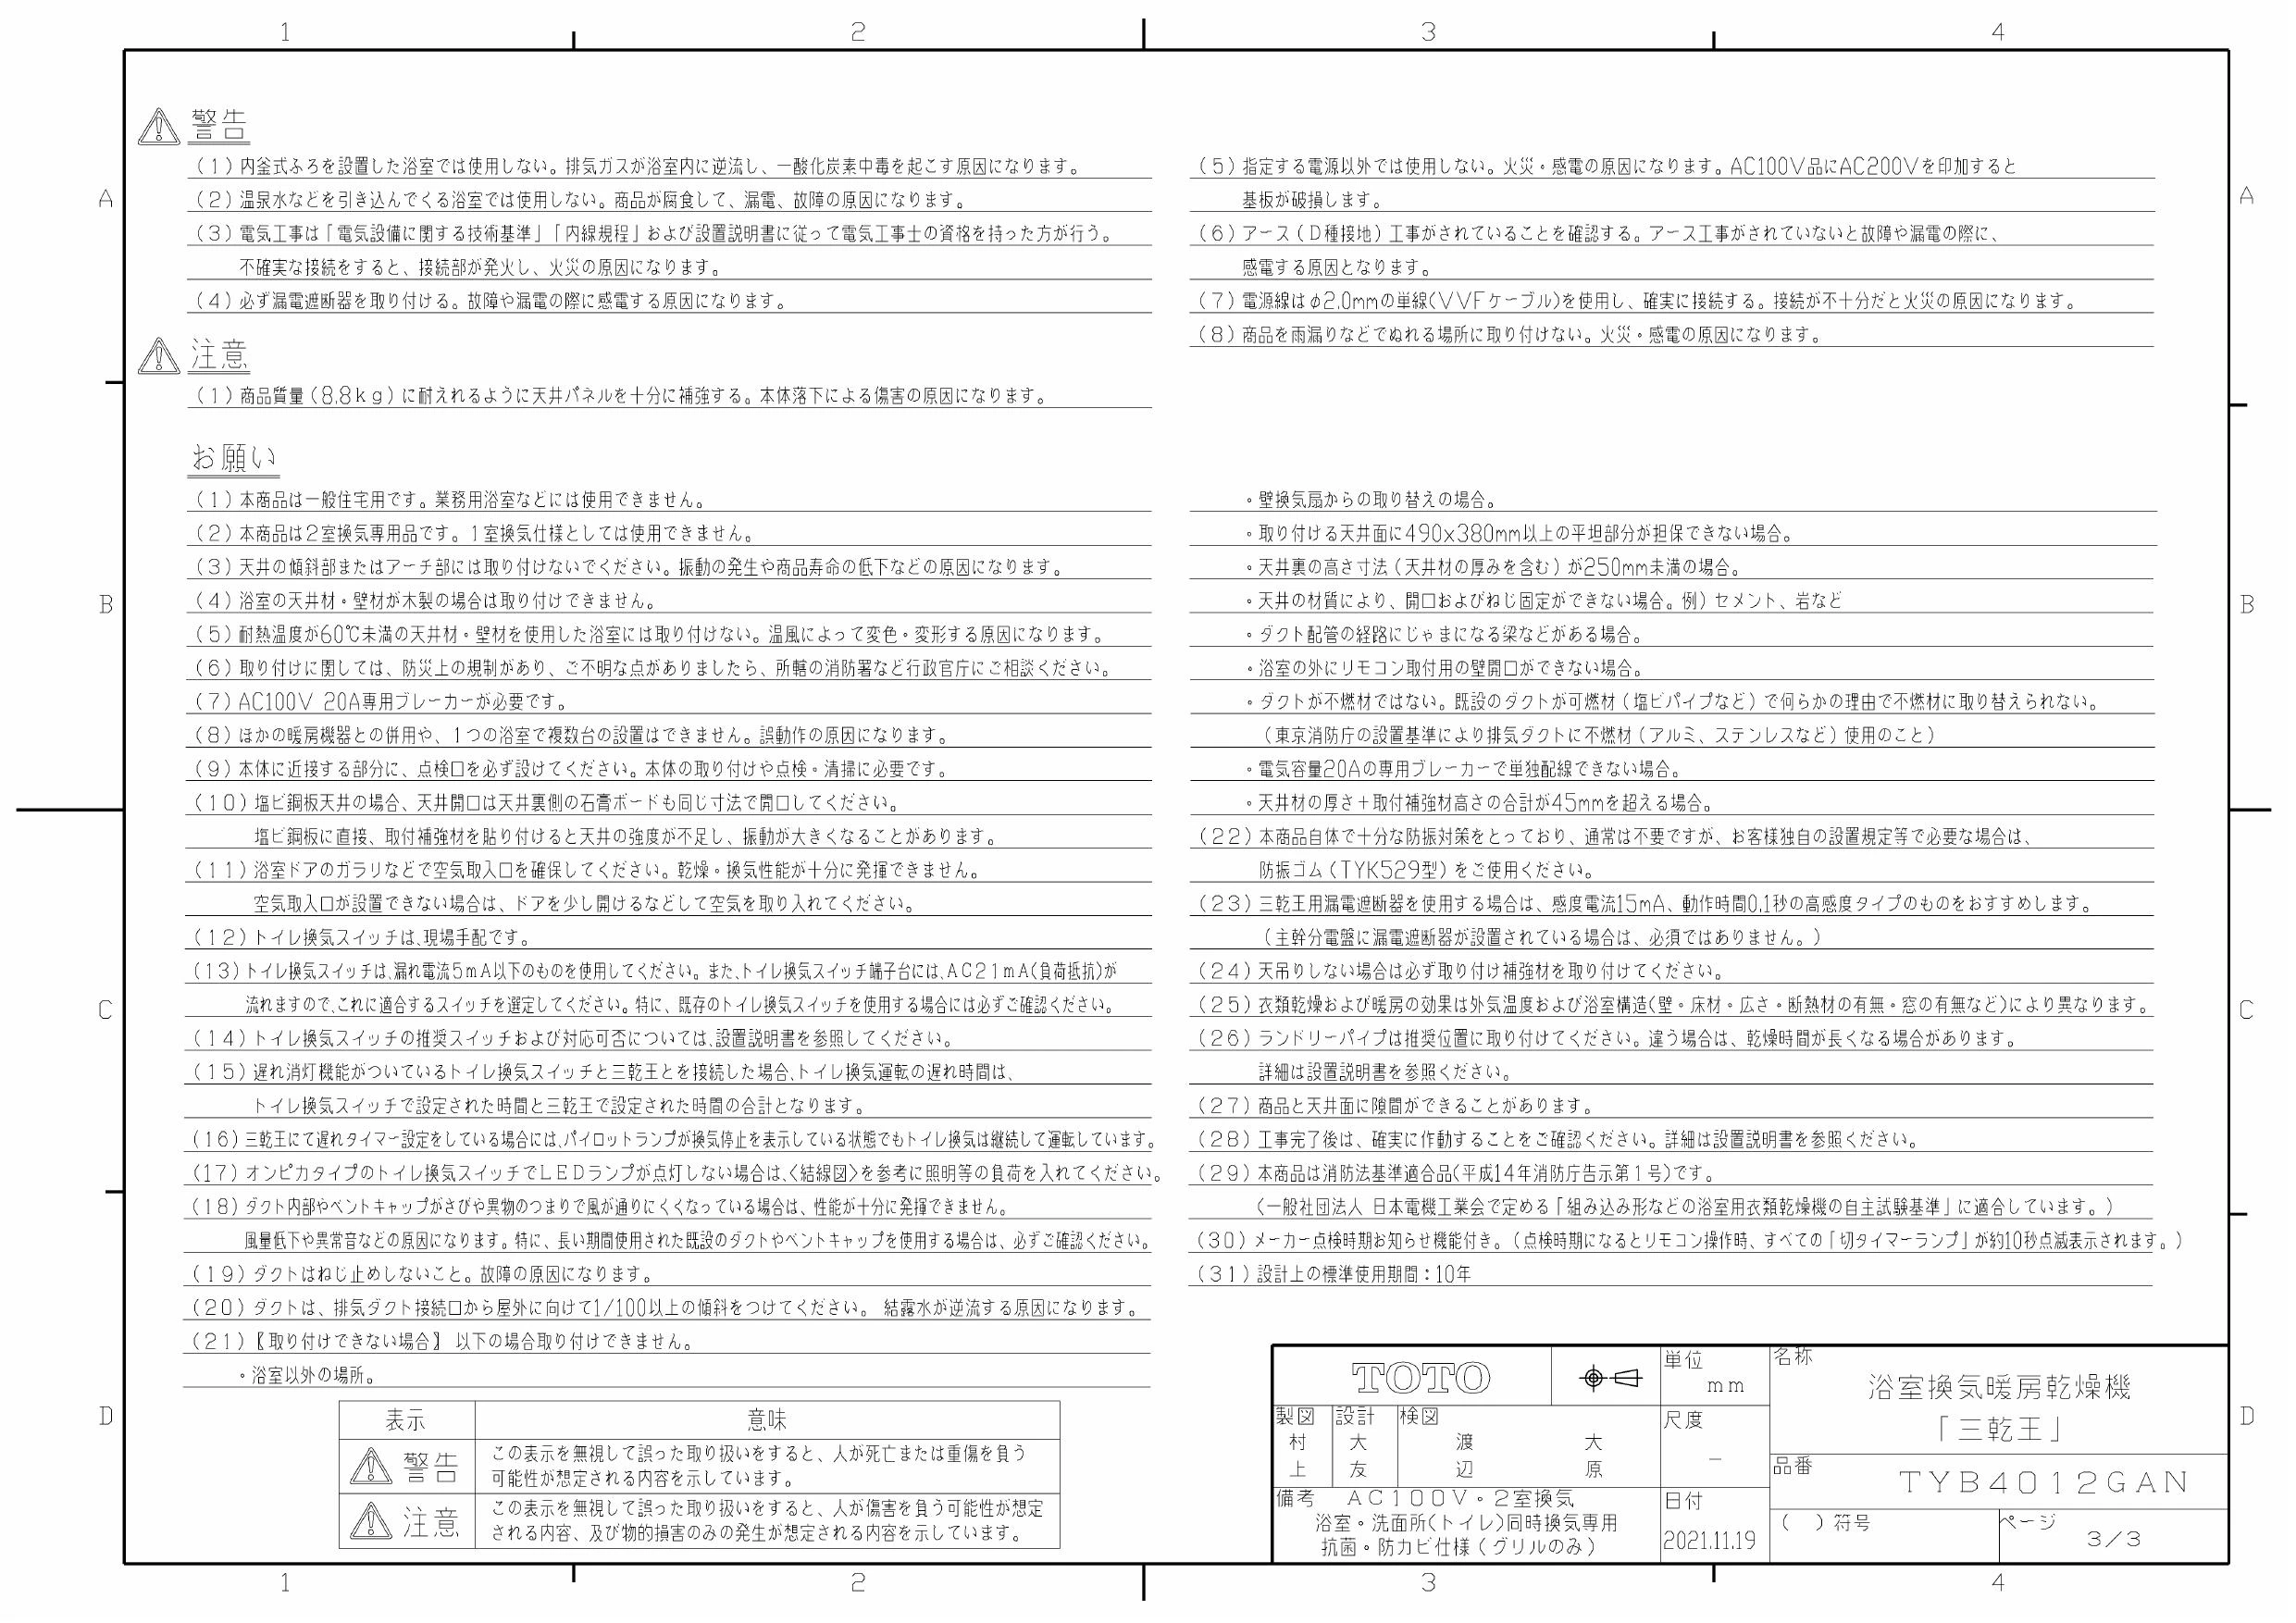 1 2 3 4
A
B
C
D
警告
(1)内釜式ふろを設置した浴室では使用しない。排気ガスが浴室内に逆流し、一酸化炭素中毒を起こす原因になります。
(2)温泉水などを引き込んでくる浴室では使用しない。商品が腐食して、漏電、故障の原因になります。
(3)電気工事は「電気設備に関する技術基準」「内線規程」および設置説明書に従って電気工事士の資格を持った方が行う。
不確実な接続をすると、接続部が発火し、火災の原因になります。
(4)必ず漏電遮断器を取り付ける。故障や漏電の際に感電する原因になります。
(5)指定する電源以外では使用しない。火災・感電の原因になります。AC100V品にAC200Vを印加すると
基板が破損します。
(6)アース(D種接地)工事がされていることを確認する。アース工事がされていないと故障や漏電の際に、
感電する原因となります。
(7)電源線はφ2.0mmの単線(VVFケーブル)を使用し、確実に接続する。接続が不十分だと火災の原因になります。
(8)商品を雨漏りなどでぬれる場所に取り付けない。火災・感電の原因になります。
注意
(1)商品質量(8.8kg)に耐えれるように天井パネルを十分に補強する。本体落下による傷害の原因になります。
お願い
(1)本商品は一般住宅用です。業務用浴室などには使用できません。
(2)本商品は2室換気専用品です。1室換気仕様としては使用できません。
(3)天井の傾斜部またはアーチ部には取り付けないでください。振動の発生や商品寿命の低下などの原因になります。
(4)浴室の天井材・壁材が木製の場合は取り付けできません。
(5)耐熱温度が60℃未満の天井材・壁材を使用した浴室には取り付けない。温風によって変色・変形する原因になります。
(6)取り付けに関しては、防災上の規制があり、ご不明な点がありましたら、所轄の消防署など行政官庁にご相談ください。
(7)AC100V 20A専用ブレーカーが必要です。
(8)ほかの暖房機器との併用や、1つの浴室で複数台の設置はできません。誤動作の原因になります。
(9)本体に近接する部分に、点検口を必ず設けてください。本体の取り付けや点検・清掃に必要です。
(10)塩ビ鋼板天井の場合、天井開口は天井裏側の石膏ボードも同じ寸法で開口してください。
塩ビ鋼板に直接、取付補強材を貼り付けると天井の強度が不足し、振動が大きくなることがあります。
(11)浴室ドアのガラリなどで空気取入口を確保してください。乾燥・換気性能が十分に発揮できません。
空気取入口が設置できない場合は、ドアを少し開けるなどして空気を取り入れてください。
(12)トイレ換気スイッチは、現場手配です。
(13)トイレ換気スイッチは、漏れ電流5mA以下のものを使用してください。また、トイレ換気スイッチ端子台には、AC21mA(負荷抵抗)が
流れますので、これに適合するスイッチを選定してください。特に、既存のトイレ換気スイッチを使用する場合には必ずご確認ください。
(14)トイレ換気スイッチの推奨スイッチおよび対応可否については、設置説明書を参照してください。
(15)遅れ消灯機能がついているトイレ換気スイッチと三乾王とを接続した場合、トイレ換気運転の遅れ時間は、
トイレ換気スイッチで設定された時間と三乾王で設定された時間の合計となります。
(16)三乾王にて遅れタイマー設定をしている場合には、パイロットランプが換気停止を表示している状態でもトイレ換気は継続して運転しています。
(17)オンピカタイプのトイレ換気スイッチでLEDランプが点灯しない場合は、〈結線図〉を参考に照明等の負荷を入れてください。
(18)ダクト内部やベントキャップがさびや異物のつまりで風が通りにくくなっている場合は、性能が十分に発揮できません。
風量低下や異常音などの原因になります。特に、長い期間使用された既設のダクトやベントキャップを使用する場合は、必ずご確認ください。
(19)ダクトはねじ止めしないこと。故障の原因になります。
(20)ダクトは、排気ダクト接続口から屋外に向けて1/100以上の傾斜をつけてください。 結露水が逆流する原因になります。
(21)【取り付けできない場合】 以下の場合取り付けできません。
・浴室以外の場所。
・壁換気扇からの取り替えの場合。
・取り付ける天井面に490x380mm以上の平坦部分が担保できない場合。
・天井裏の高さ寸法(天井材の厚みを含む)が250mm未満の場合。
・天井の材質により、開口およびねじ固定ができない場合。例)セメント、岩など
・ダクト配管の経路にじゃまになる梁などがある場合。
・浴室の外にリモコン取付用の壁開口ができない場合。
・ダクトが不燃材ではない。既設のダクトが可燃材(塩ビパイプなど)で何らかの理由で不燃材に取り替えられない。
(東京消防庁の設置基準により排気ダクトに不燃材(アルミ、ステンレスなど)使用のこと)
・電気容量20Aの専用ブレーカーで単独配線できない場合。
・天井材の厚さ+取付補強材高さの合計が45mmを超える場合。
(22)本商品自体で十分な防振対策をとっており、通常は不要ですが、お客様独自の設置規定等で必要な場合は、
防振ゴム(TYK529型)をご使用ください。
(23)三乾王用漏電遮断器を使用する場合は、感度電流15mA、動作時間0.1秒の高感度タイプのものをおすすめします。
(主幹分電盤に漏電遮断器が設置されている場合は、必須ではありません。)
(24)天吊りしない場合は必ず取り付け補強材を取り付けてください。
(25)衣類乾燥および暖房の効果は外気温度および浴室構造(壁・床材・広さ・断熱材の有無・窓の有無など)により異なります。
(26)ランドリーパイプは推奨位置に取り付けてください。違う場合は、乾燥時間が長くなる場合があります。
詳細は設置説明書を参照ください。
(27)商品と天井面に隙間ができることがあります。
(28)工事完了後は、確実に作動することをご確認ください。詳細は設置説明書を参照ください。
(29)本商品は消防法基準適合品(平成14年消防庁告示第1号)です。
(一般社団法人 日本電機工業会で定める「組み込み形などの浴室用衣類乾燥機の自主試験基準」に適合しています。)
(30)メーカー点検時期お知らせ機能付き。(点検時期になるとリモコン操作時、すべての「切タイマーランプ」が約10秒点滅表示されます。)
(31)設計上の標準使用期間:10年
表示 意味
警告 この表示を無視して誤った取り扱いをすると、人が死亡または重傷を負う
可能性が想定される内容を示しています。
注意 この表示を無視して誤った取り扱いをすると、人が傷害を負う可能性が想定
される内容、及び物的損害のみの発生が想定される内容を示しています。
TOTO
単位
mm
名称
浴室換気暖房乾燥機
「三乾王」
製図 設計 検図
村上 大友 渡辺 大原
尺度
-
品番
TYB4012GAN
備考 AC100V・2室換気
浴室・洗面所(トイレ)同時換気専用
抗菌・防カビ仕様(グリルのみ)
日付
2021.11.19
( )符号
ページ
3/3
A
B
C
D
1 2 3 4